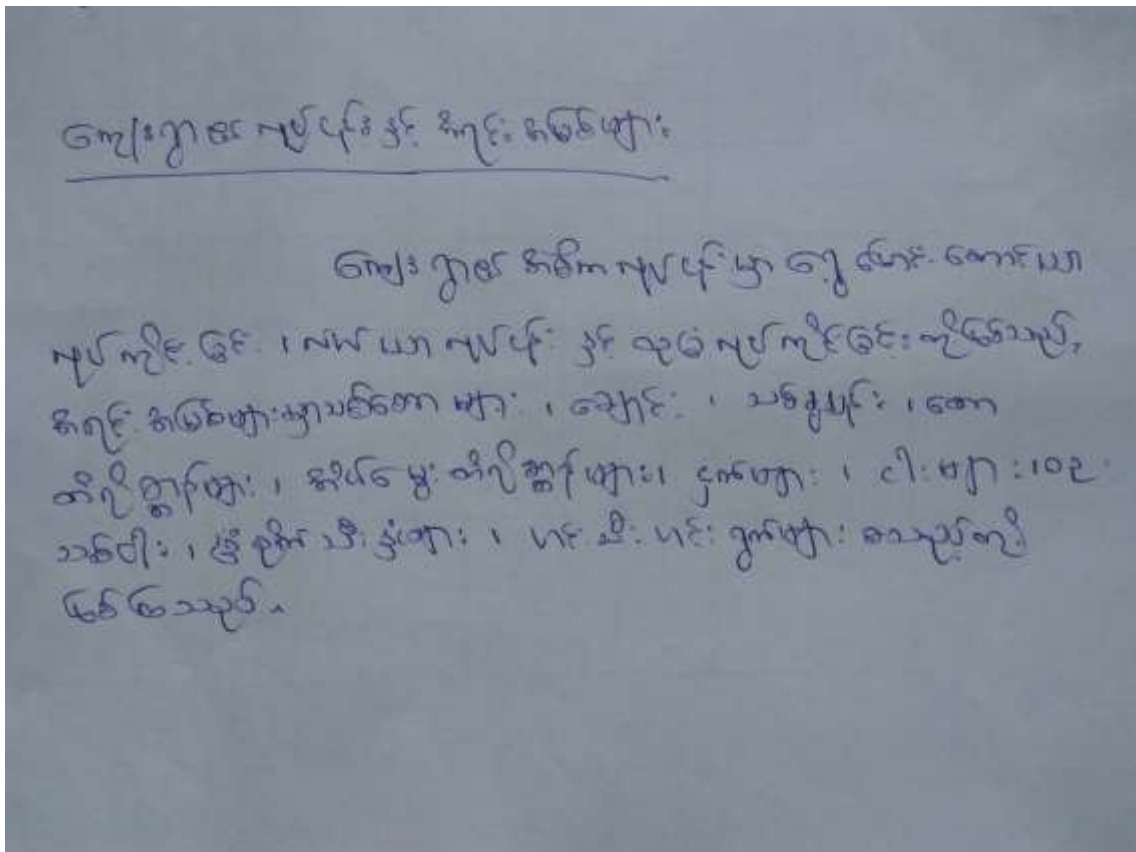 ကျေးရွာ၏ လုပ်ငန်းနှင့် အရင်းအမြစ်များ
ကျေးရွာ၏ အဓိကလုပ်ငန်းမှာ ရွှေ့ပြောင်းတောင်ယာ
လုပ်ကိုင်ခြင်း၊ လယ်ယာလုပ်ငန်း နှင့် ဥယျာဉ်လုပ်ကိုင်ခြင်းတို့ဖြစ်သည်,
အရင်းအမြစ်များမှာသစ်တောများ၊ ချောင်း၊ သစ်ခွပန်း၊ တော
တိရိစ္ဆာန်များ၊ အိမ်မွေးတိရိစ္ဆာန်များ၊ ငှက်များ၊ ငါးများ၊ဝါး
သစ်ပါး၊ နှံစားသီးနှံများ၊ ဟင်းသီးဟင်းရွက်များ စသည်တို့
ဖြစ်ကြသည်။